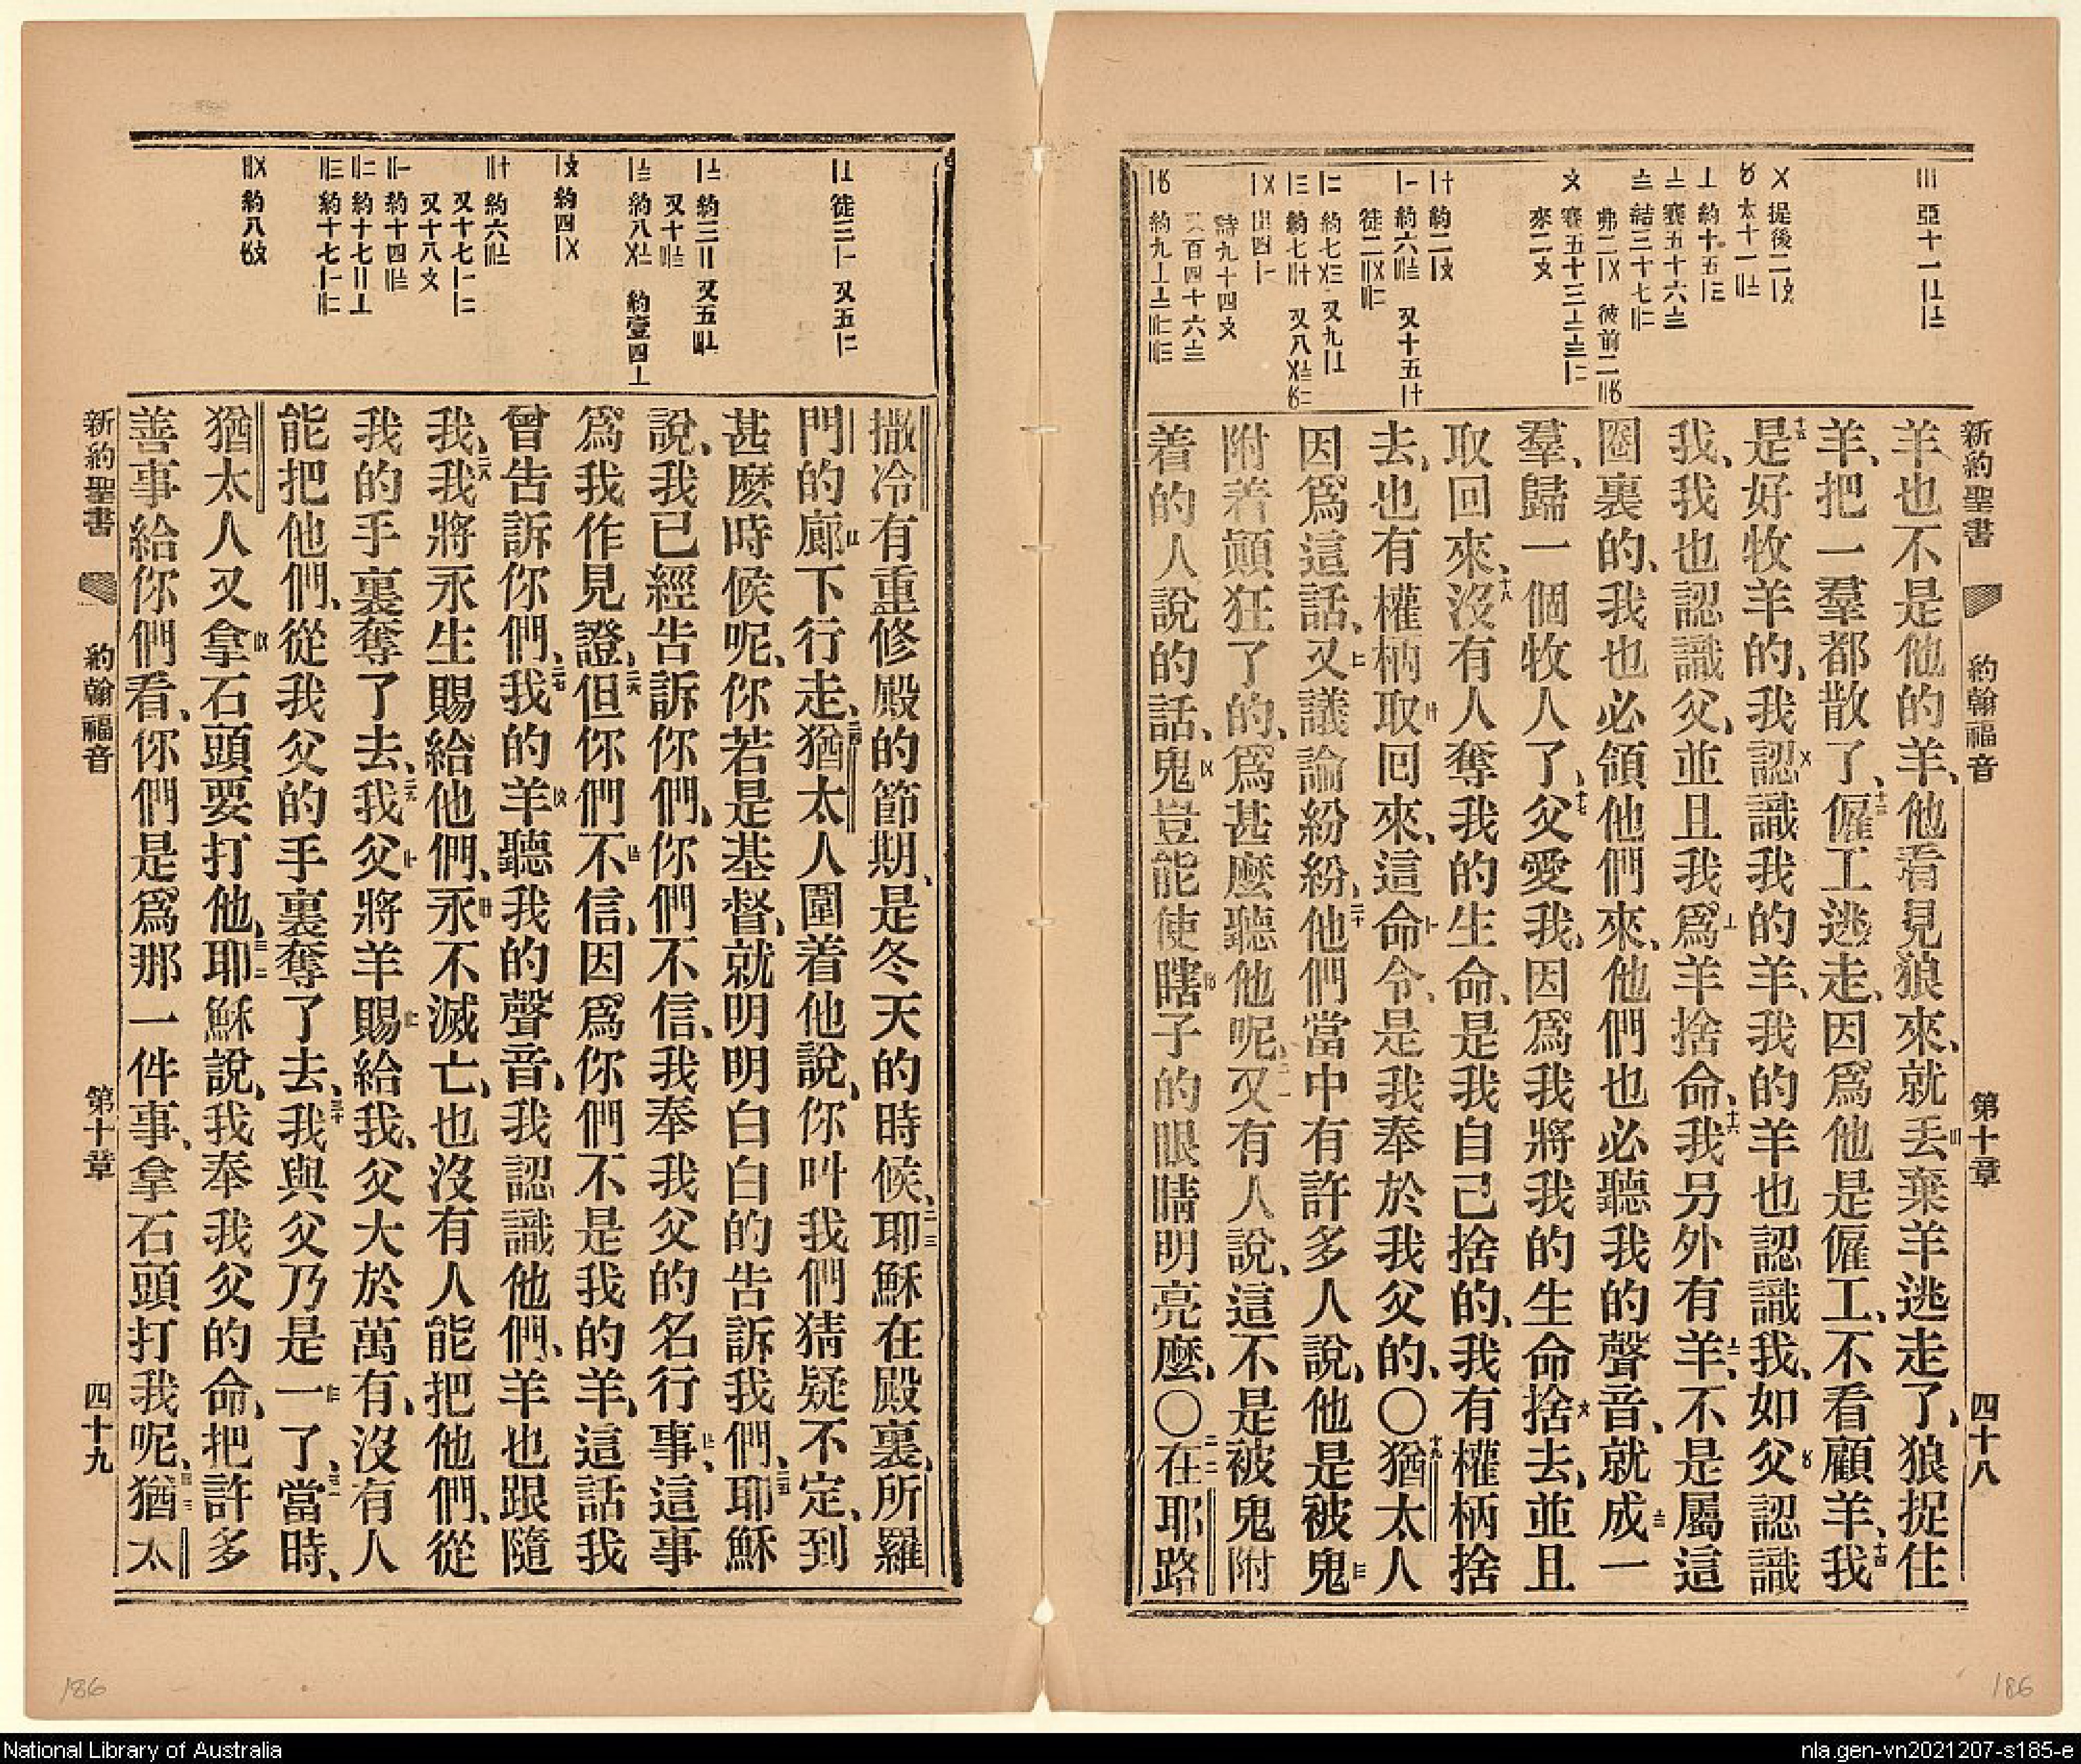 新約聖書 約翰福音 第十章 四十八
羊也不是他的羊、他看見狼來、就丟棄羊逃走了、狼捉住
羊、把一羣都散了、十三僱工逃走、因爲他是僱工、不看顧羊、十四我
十五是好牧羊的、我認識我的羊、我的羊也認識我、如父認識
我、我也認識父、並且我爲羊捨命、十六我另外有羊、不是屬這
圈裏的、我也必領他們來、他們也必聽我的聲音、就成一
羣、歸一個牧人了、十七父愛我、因爲我將我的生命捨去、並且
取回來、十八沒有人奪我的生命、是我自己捨的、我有權柄捨
去、也有權柄取回來、這命令、是我奉於我父的、〇十九猶太人
因爲這話、又議論紛紛、二十他們當中有許多人說、他是被鬼
附着顛狂了的、爲甚麼聽他呢、二一又有人說、這不是被鬼附
着的人說的話、鬼豈能使瞎子的眼睛明亮麼、〇二二在耶路
撒冷有重修殿的節期、是冬天的時候、二三耶穌在殿裏、所羅
門的廊下行走、二四猶太人圍着他說、你叫我們猜疑不定、到
甚麼時候呢、你若是基督、就明明白白的告訴我們、二五耶穌
說、我已經告訴你們、你們不信、我奉我父的名行事、這事
爲我作見證、二六但你們不信、因爲你們不是我的羊、這話我
曾告訴你們、二七我的羊聽我的聲音、我認識他們、羊也跟隨
我、二八我將永生賜給他們、永不滅亡、也沒有人能把他們、從
我的手裏奪了去、二九我父將羊賜給我、父大於萬有、沒有人
能把他們、從我父的手裏奪了去、三十我與父乃是一了、三一當時、
猶太人又拿石頭要打他、三二耶穌說、我奉我父的命、把許多
善事給你們看、你們是爲那一件事、拿石頭打我呢、三三猶太
新約聖書 約翰福音 第十章 四十九
186
186
National Library of Australia
nla.gen-vn2021207-s185-e